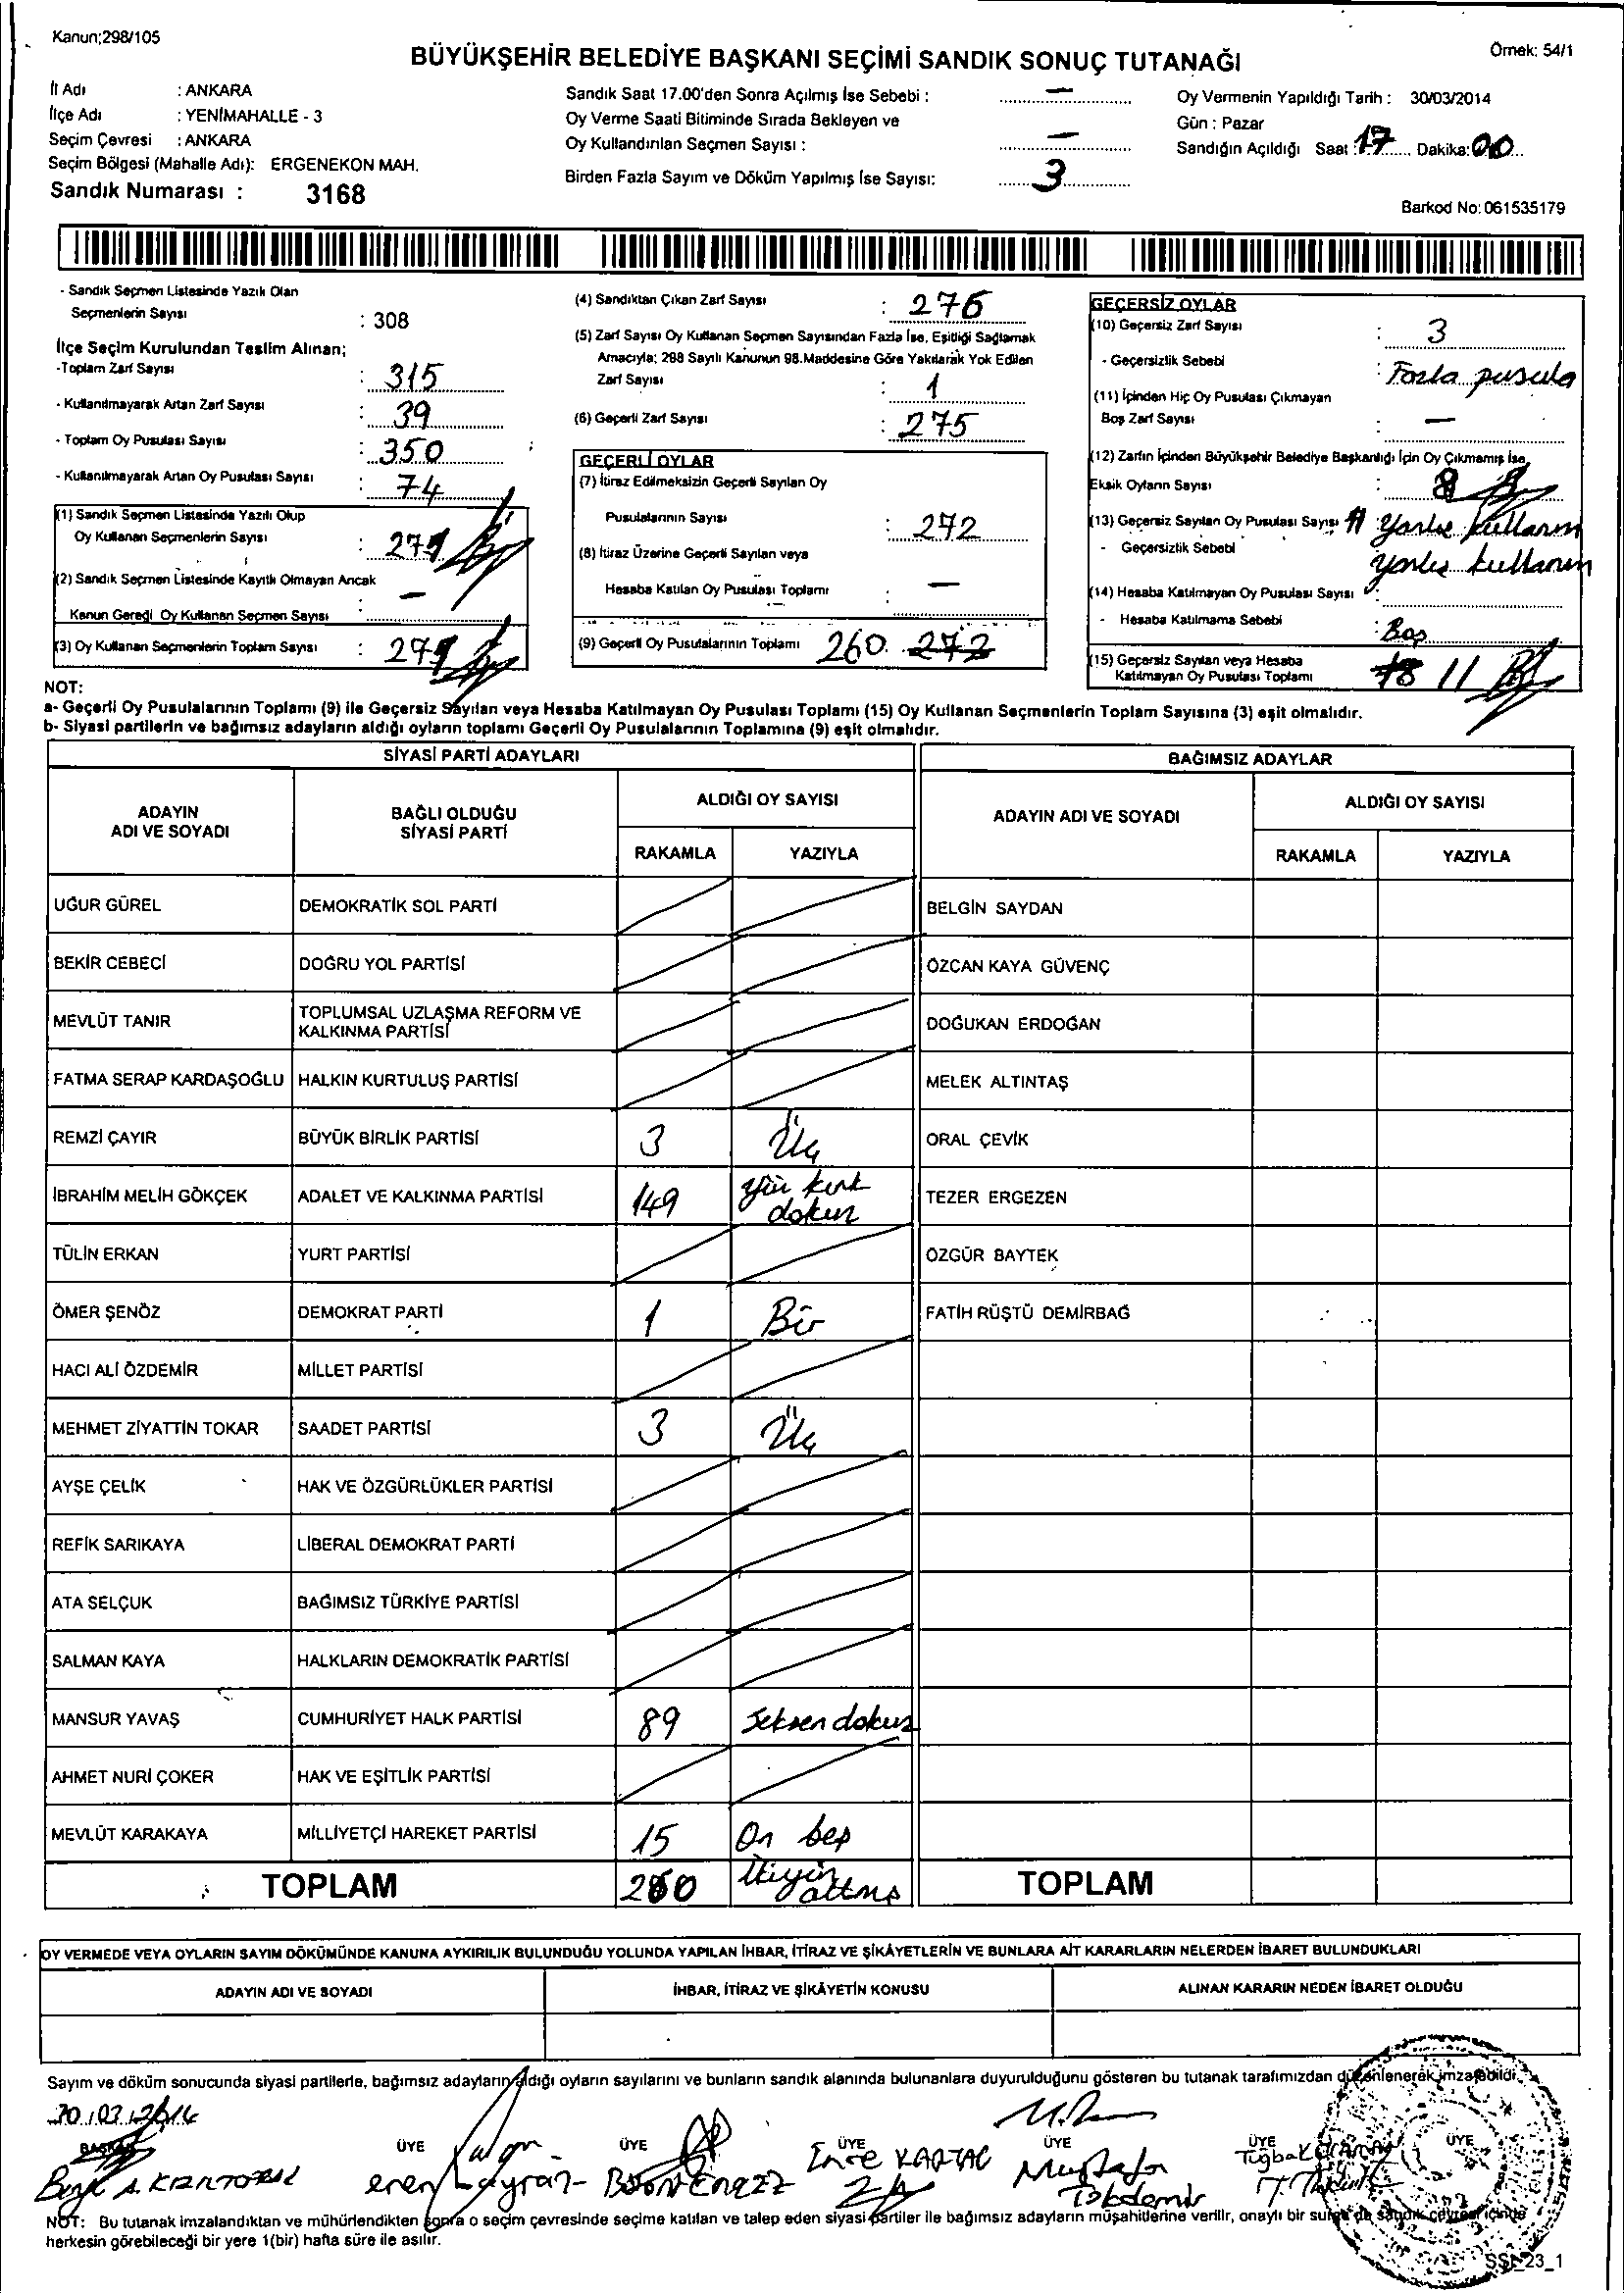 Kanun;298/105
BÜYÜKŞEHİR BELEDİYE BAŞKANI SEÇİMİ SANDIK SONUÇ TUTANAĞI
Örnek: 54/1
İl Adı : ANKARA
İlçe Adı : YENİMAHALLE - 3
Seçim Çevresi : ANKARA
Seçim Bölgesi (Mahalle Adı): ERGENEKON MAH.
Sandık Numarası : 3168
Sandık Saat 17.00'den Sonra Açılmış İse Sebebi : —
Oy Verme Saati Bitiminde Sırada Bekleyen ve
Oy Kullandırılan Seçmen Sayısı : —
Birden Fazla Sayım ve Döküm Yapılmış İse Sayısı: 3
Oy Vermenin Yapıldığı Tarih : 30/03/2014
Gün : Pazar
Sandığın Açıldığı Saat : 17 Dakika: 00
Barkod No: 061535179
- Sandık Seçmen Listesinde Yazılı Olan
Seçmenlerin Sayısı : 308
İlçe Seçim Kurulundan Teslim Alınan;
-Toplam Zarf Sayısı : 315
- Kullanılmayarak Artan Zarf Sayısı : 39
- Toplam Oy Pusulası Sayısı : 350
- Kullanılmayarak Artan Oy Pusulası Sayısı : 74
(1) Sandık Seçmen Listesinde Yazılı Olup
Oy Kullanan Seçmenlerin Sayısı :
(2) Sandık Seçmen Listesinde Kayıtlı Olmayan Ancak
Kanun Gereği Oy Kullanan Seçmen Sayısı : —
(3) Oy Kullanan Seçmenlerin Toplam Sayısı :
(4) Sandıktan Çıkan Zarf Sayısı : 276
(5) Zarf Sayısı Oy Kullanan Seçmen Sayısından Fazla İse, Eşitliği Sağlamak
Amacıyla; 298 Sayılı Kanunun 98.Maddesine Göre Yakılarak Yok Edilen
Zarf Sayısı : 1
(6) Geçerli Zarf Sayısı : 275
GEÇERLİ OYLAR
(7) İtiraz Edilmeksizin Geçerli Sayılan Oy
Pusulalarının Sayısı : 272
(8) İtiraz Üzerine Geçerli Sayılan veya
Hesaba Katılan Oy Pusulası Toplamı : —
(9) Geçerli Oy Pusulalarının Toplamı 260 272
GEÇERSİZ OYLAR
(10) Geçersiz Zarf Sayısı : 3
- Geçersizlik Sebebi : Fazla pusula
(11) İçinden Hiç Oy Pusulası Çıkmayan
Boş Zarf Sayısı : —
(12) Zarfın İçinden Büyükşehir Belediye Başkanlığı İçin Oy Çıkmamış İse
Eksik Oyların Sayısı : 8
(13) Geçersiz Sayılan Oy Pusulası Sayısı
- Geçersizlik Sebebi
(14) Hesaba Katılmayan Oy Pusulası Sayısı :
- Hesaba Katılmama Sebebi : Boş
(15) Geçersiz Sayılan veya Hesaba
Katılmayan Oy Pusulası Toplamı 11
NOT:
a- Geçerli Oy Pusulalarının Toplamı (9) ile Geçersiz Sayılan veya Hesaba Katılmayan Oy Pusulası Toplamı (15) Oy Kullanan Seçmenlerin Toplam Sayısına (3) eşit olmalıdır.
b- Siyasi partilerin ve bağımsız adayların aldığı oyların toplamı Geçerli Oy Pusulalarının Toplamına (9) eşit olmalıdır.
SİYASİ PARTİ ADAYLARI BAĞIMSIZ ADAYLAR
ADAYIN
ADI VE SOYADI
BAĞLI OLDUĞU
SİYASİ PARTİ
ALDIĞI OY SAYISI
RAKAMLA YAZIYLA
ADAYIN ADI VE SOYADI
ALDIĞI OY SAYISI
RAKAMLA YAZIYLA
UĞUR GÜREL DEMOKRATİK SOL PARTİ BELGİN SAYDAN
BEKİR CEBECİ DOĞRU YOL PARTİSİ ÖZCAN KAYA GÜVENÇ
MEVLÜT TANIR TOPLUMSAL UZLAŞMA REFORM VE
KALKINMA PARTİSİ DOĞUKAN ERDOĞAN
FATMA SERAP KARDAŞOĞLU HALKIN KURTULUŞ PARTİSİ MELEK ALTINTAŞ
REMZİ ÇAYIR BÜYÜK BİRLİK PARTİSİ 3 Üç ORAL ÇEVİK
İBRAHİM MELİH GÖKÇEK ADALET VE KALKINMA PARTİSİ 149 yüz kırk
dokuz TEZER ERGEZEN
TÜLİN ERKAN YURT PARTİSİ ÖZGÜR BAYTEK
ÖMER ŞENÖZ DEMOKRAT PARTİ 1 Bir FATİH RÜŞTÜ DEMİRBAĞ
HACI ALİ ÖZDEMİR MİLLET PARTİSİ
MEHMET ZİYATTİN TOKAR SAADET PARTİSİ 3 Üç
AYŞE ÇELİK HAK VE ÖZGÜRLÜKLER PARTİSİ
REFİK SARIKAYA LİBERAL DEMOKRAT PARTİ
ATA SELÇUK BAĞIMSIZ TÜRKİYE PARTİSİ
SALMAN KAYA HALKLARIN DEMOKRATİK PARTİSİ
MANSUR YAVAŞ CUMHURİYET HALK PARTİSİ 89 Seksen dokuz
AHMET NURİ ÇOKER HAK VE EŞİTLİK PARTİSİ
MEVLÜT KARAKAYA MİLLİYETÇİ HAREKET PARTİSİ 15 On beş
TOPLAM 260 İkiyüz
altmış TOPLAM
OY VERMEDE VEYA OYLARIN SAYIM DÖKÜMÜNDE KANUNA AYKIRILIK BULUNDUĞU YOLUNDA YAPILAN İHBAR, İTİRAZ VE ŞİKÂYETLERİN VE BUNLARA AİT KARARLARIN NELERDEN İBARET BULUNDUKLARI
ADAYIN ADI VE SOYADI İHBAR, İTİRAZ VE ŞİKÂYETİN KONUSU ALINAN KARARIN NEDEN İBARET OLDUĞU
Sayım ve döküm sonucunda siyasi partilerle, bağımsız adayların aldığı oyların sayılarını ve bunların sandık alanında bulunanlara duyurulduğunu gösteren bu tutanak tarafımızdan düzenlenerek imzalandı.
30.03.2014
BAŞKAN ÜYE ÜYE ÜYE ÜYE ÜYE ÜYE
eren Emre KARTAL Mustafa
Tuğba
NOT: Bu tutanak imzalandıktan ve mühürlendikten sonra o seçim çevresinde seçime katılan ve talep eden siyasi partiler ile bağımsız adayların müşahitlerine verilir, onaylı bir sureti de sandık çevresi içinde
herkesin görebileceği bir yere 1(bir) hafta süre ile asılır.
SSI_23_1